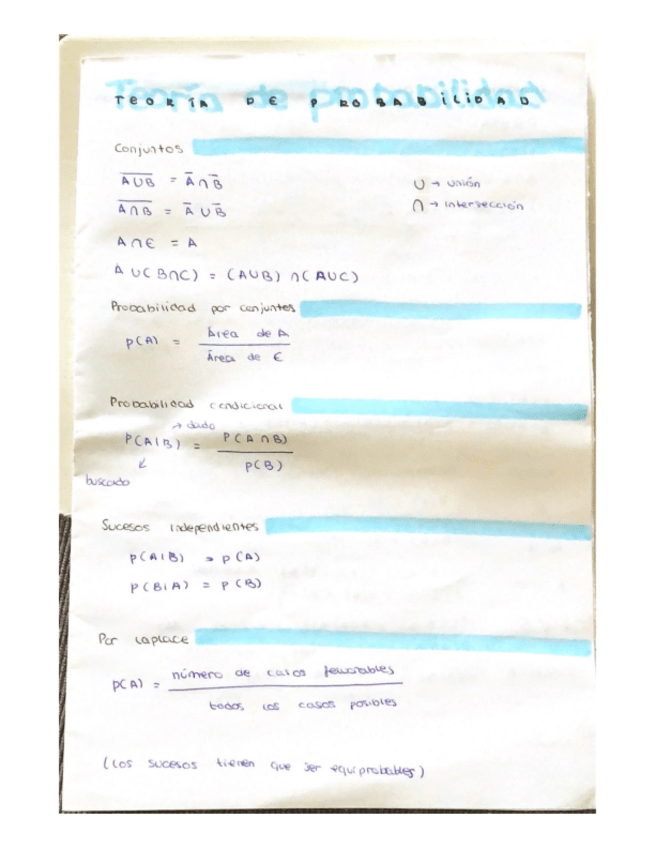 Teoría de probabilidad
TEORÍA DE PROBABILIDAD
Conjuntos
A∪B̅ = A̅ ∩ B̅ ∪ → unión
A∩B̅ = A̅ ∪ B̅ ∩ → intersección
A ∩ € = A
A ∪ (B∩C) = (A∪B) ∩ (A∪C)
Probabilidad por conjuntos
P(A) = Área de A / Área de €
Probabilidad condicional
→ dado
P(A|B) = P(A∩B) / P(B)
buscado
Sucesos independientes
P(A|B) = P(A)
P(B|A) = P(B)
Por Laplace
P(A) = número de casos favorables / todos los casos posibles
(Los sucesos tienen que ser equiprobables)